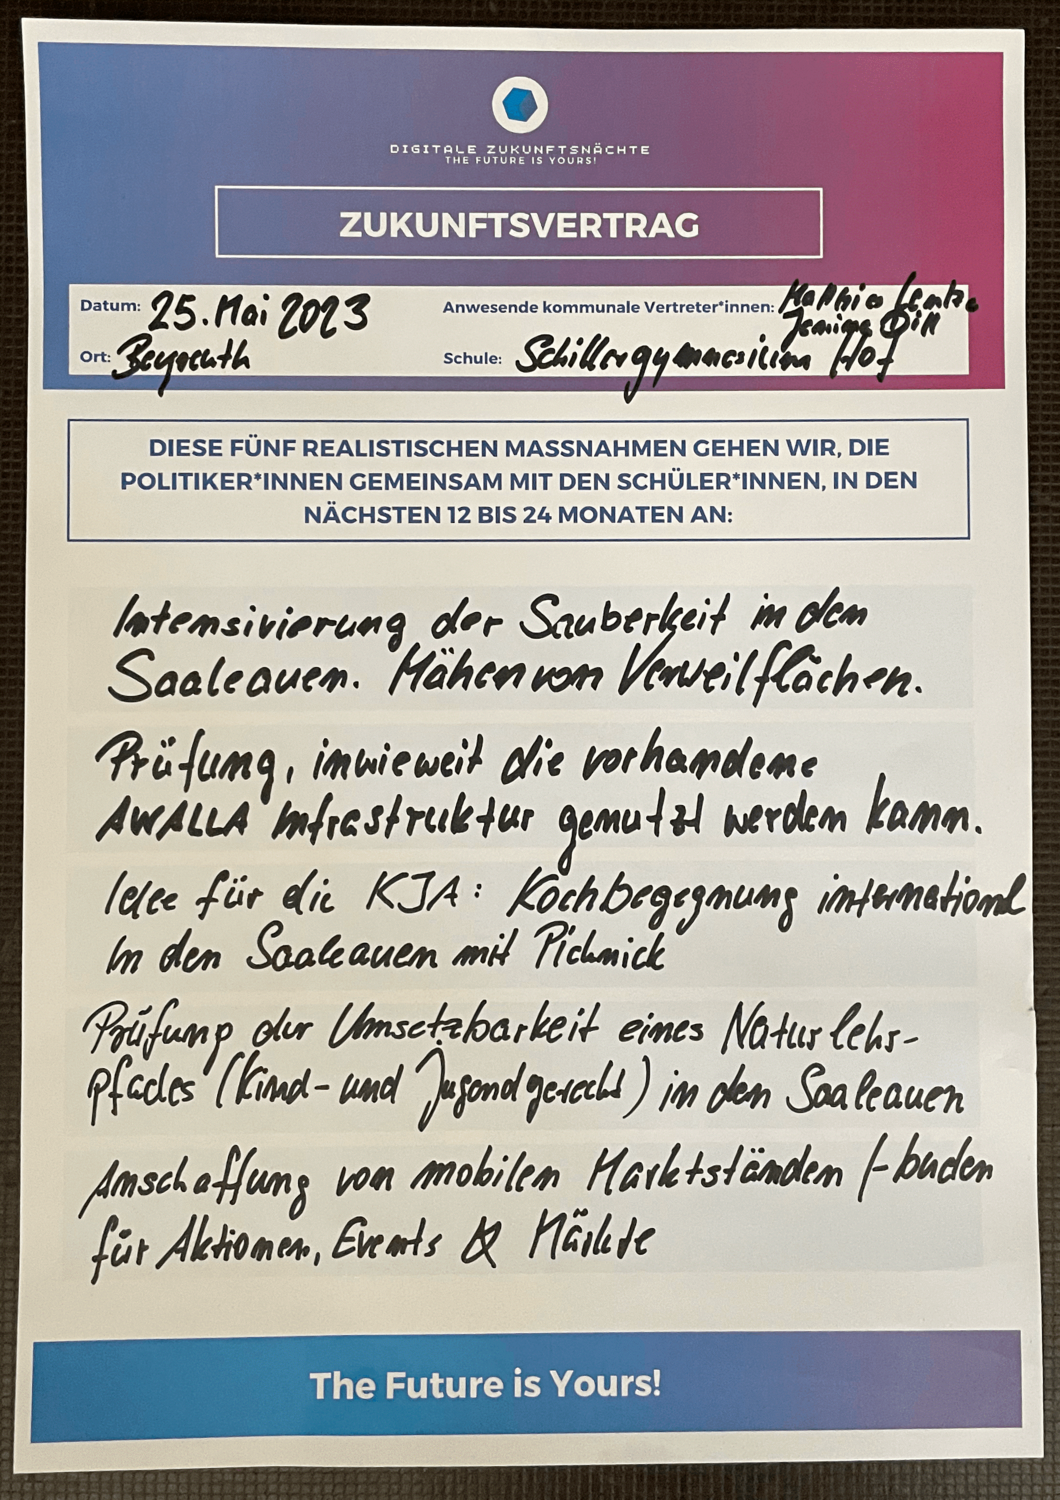 DIGITALE ZUKUNFTSNÄCHTE
THE FUTURE IS YOURS!
ZUKUNFTSVERTRAG
Datum: 25. Mai 2023
Anwesende kommunale Vertreter*innen:
Ort: Bayreuth
Schule: Schillergymnasium Hof
DIESE FÜNF REALISTISCHEN MASSNAHMEN GEHEN WIR, DIE
POLITIKER*INNEN GEMEINSAM MIT DEN SCHÜLER*INNEN, IN DEN
NÄCHSTEN 12 BIS 24 MONATEN AN:
Intensivierung der Sauberkeit in den
Saaleauen. Mähen von Verweilflächen.
Prüfung, inwieweit die vorhandene
AWALLA Infrastruktur genutzt werden kann.
Idee für die KJA: Kochbegegnung international
in den Saaleauen mit Picknick
Prüfung der Umsetzbarkeit eines Naturlehr-
pfades (Kind- und Jugendgerecht) in den Saaleauen
Anschaffung von mobilen Marktständen /-buden
für Aktionen, Events & Märkte
The Future is Yours!